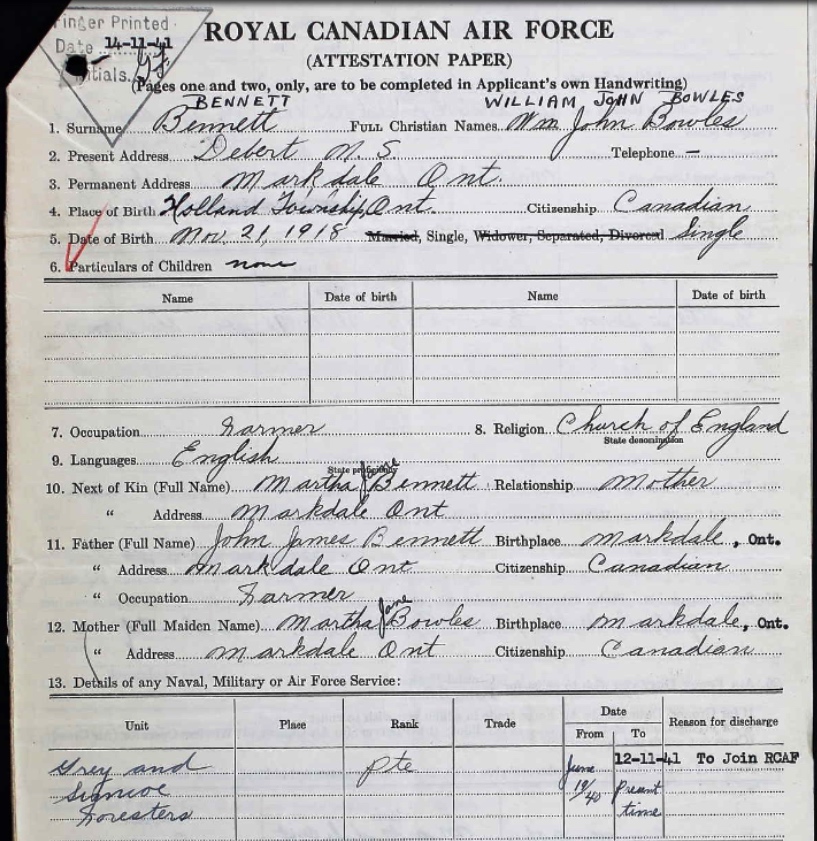 Finger Printed
Date 14-11-41
Initials
ROYAL CANADIAN AIR FORCE
(ATTESTATION PAPER)
(Pages one and two, only, are to be completed in Applicant's own Handwriting)
BENNETT WILLIAM JOHN BOWLES
1. Surname Bennett FULL Christian Names Wm John Bowles
2. Present Address Debert N.S. Telephone —
3. Permanent Address Markdale Ont.
4. Place of Birth Holland Township, Ont. Citizenship Canadian
5. Date of Birth Nov. 21, 1918 Married, Single, Widower, Separated, Divorced Single
6. Particulars of Children none
Name Date of birth Name Date of birth
7. Occupation Farmer 8. Religion Church of England
State denomination
9. Languages English
State proficiency
10. Next of Kin (Full Name) Martha Jane Bennett Relationship Mother
" Address Markdale Ont
11. Father (Full Name) John James Bennett Birthplace Markdale, Ont.
" Address Markdale Ont Citizenship Canadian
" Occupation Farmer
12. Mother (Full Maiden Name) Martha Jane Bowles Birthplace Markdale, Ont.
" Address Markdale Ont Citizenship Canadian
13. Details of any Naval, Military or Air Force Service:
Unit Place Rank Trade Date Reason for discharge
From To
Grey and Pte June 12-11-41 To Join RCAF
Simcoe 19/40 Present
Foresters time